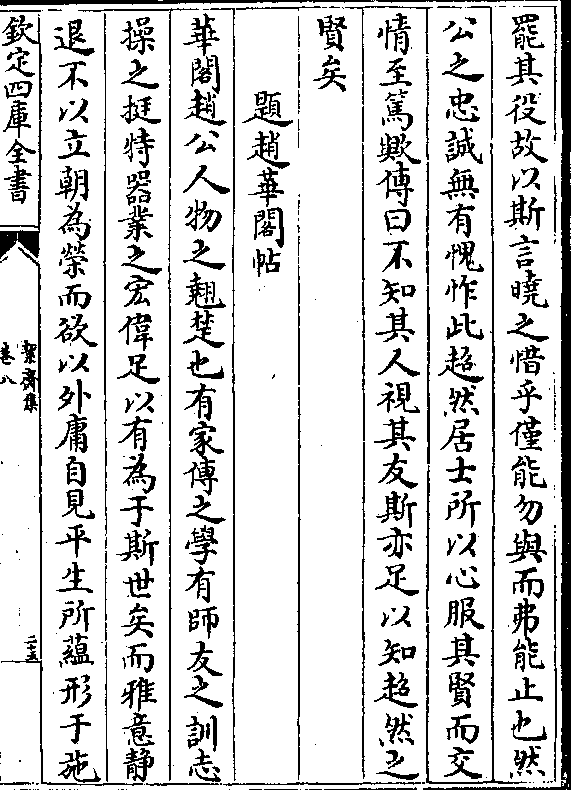 罷其役故以斯言曉之惜乎僅能勿與而弗能止也然
公之忠誠無有愧怍此超然居士所以心服其賢而交
情至篤歟傳曰不知其人視其友斯亦足以知超然之
賢矣
題趙華閣帖
華閣趙公人物之翹楚也有家傳之學有師友之訓志
操之挺特器業之宏偉足以有為于斯世矣而雅意靜
退不以立朝為榮而欲以外庸自見平生所蘊形于施
欽定四庫全書
絜齋集
卷八
二十五